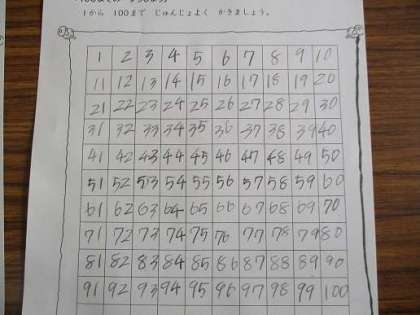 1から 100まで じゅんじょよく かきましょう。
1 2 3 4 5 6 7 8 9 10
11 12 13 14 15 16 17 18 19 20
21 22 23 24 25 26 27 28 29 30
31 32 33 34 35 36 37 38 39 40
41 42 43 44 45 46 47 48 49 50
51 52 53 54 55 56 57 58 59 60
61 62 63 64 65 66 67 68 69 70
71 72 73 74 75 76 77 78 79 80
81 82 83 84 85 86 87 88 89 90
91 92 93 94 95 96 97 98 99 100